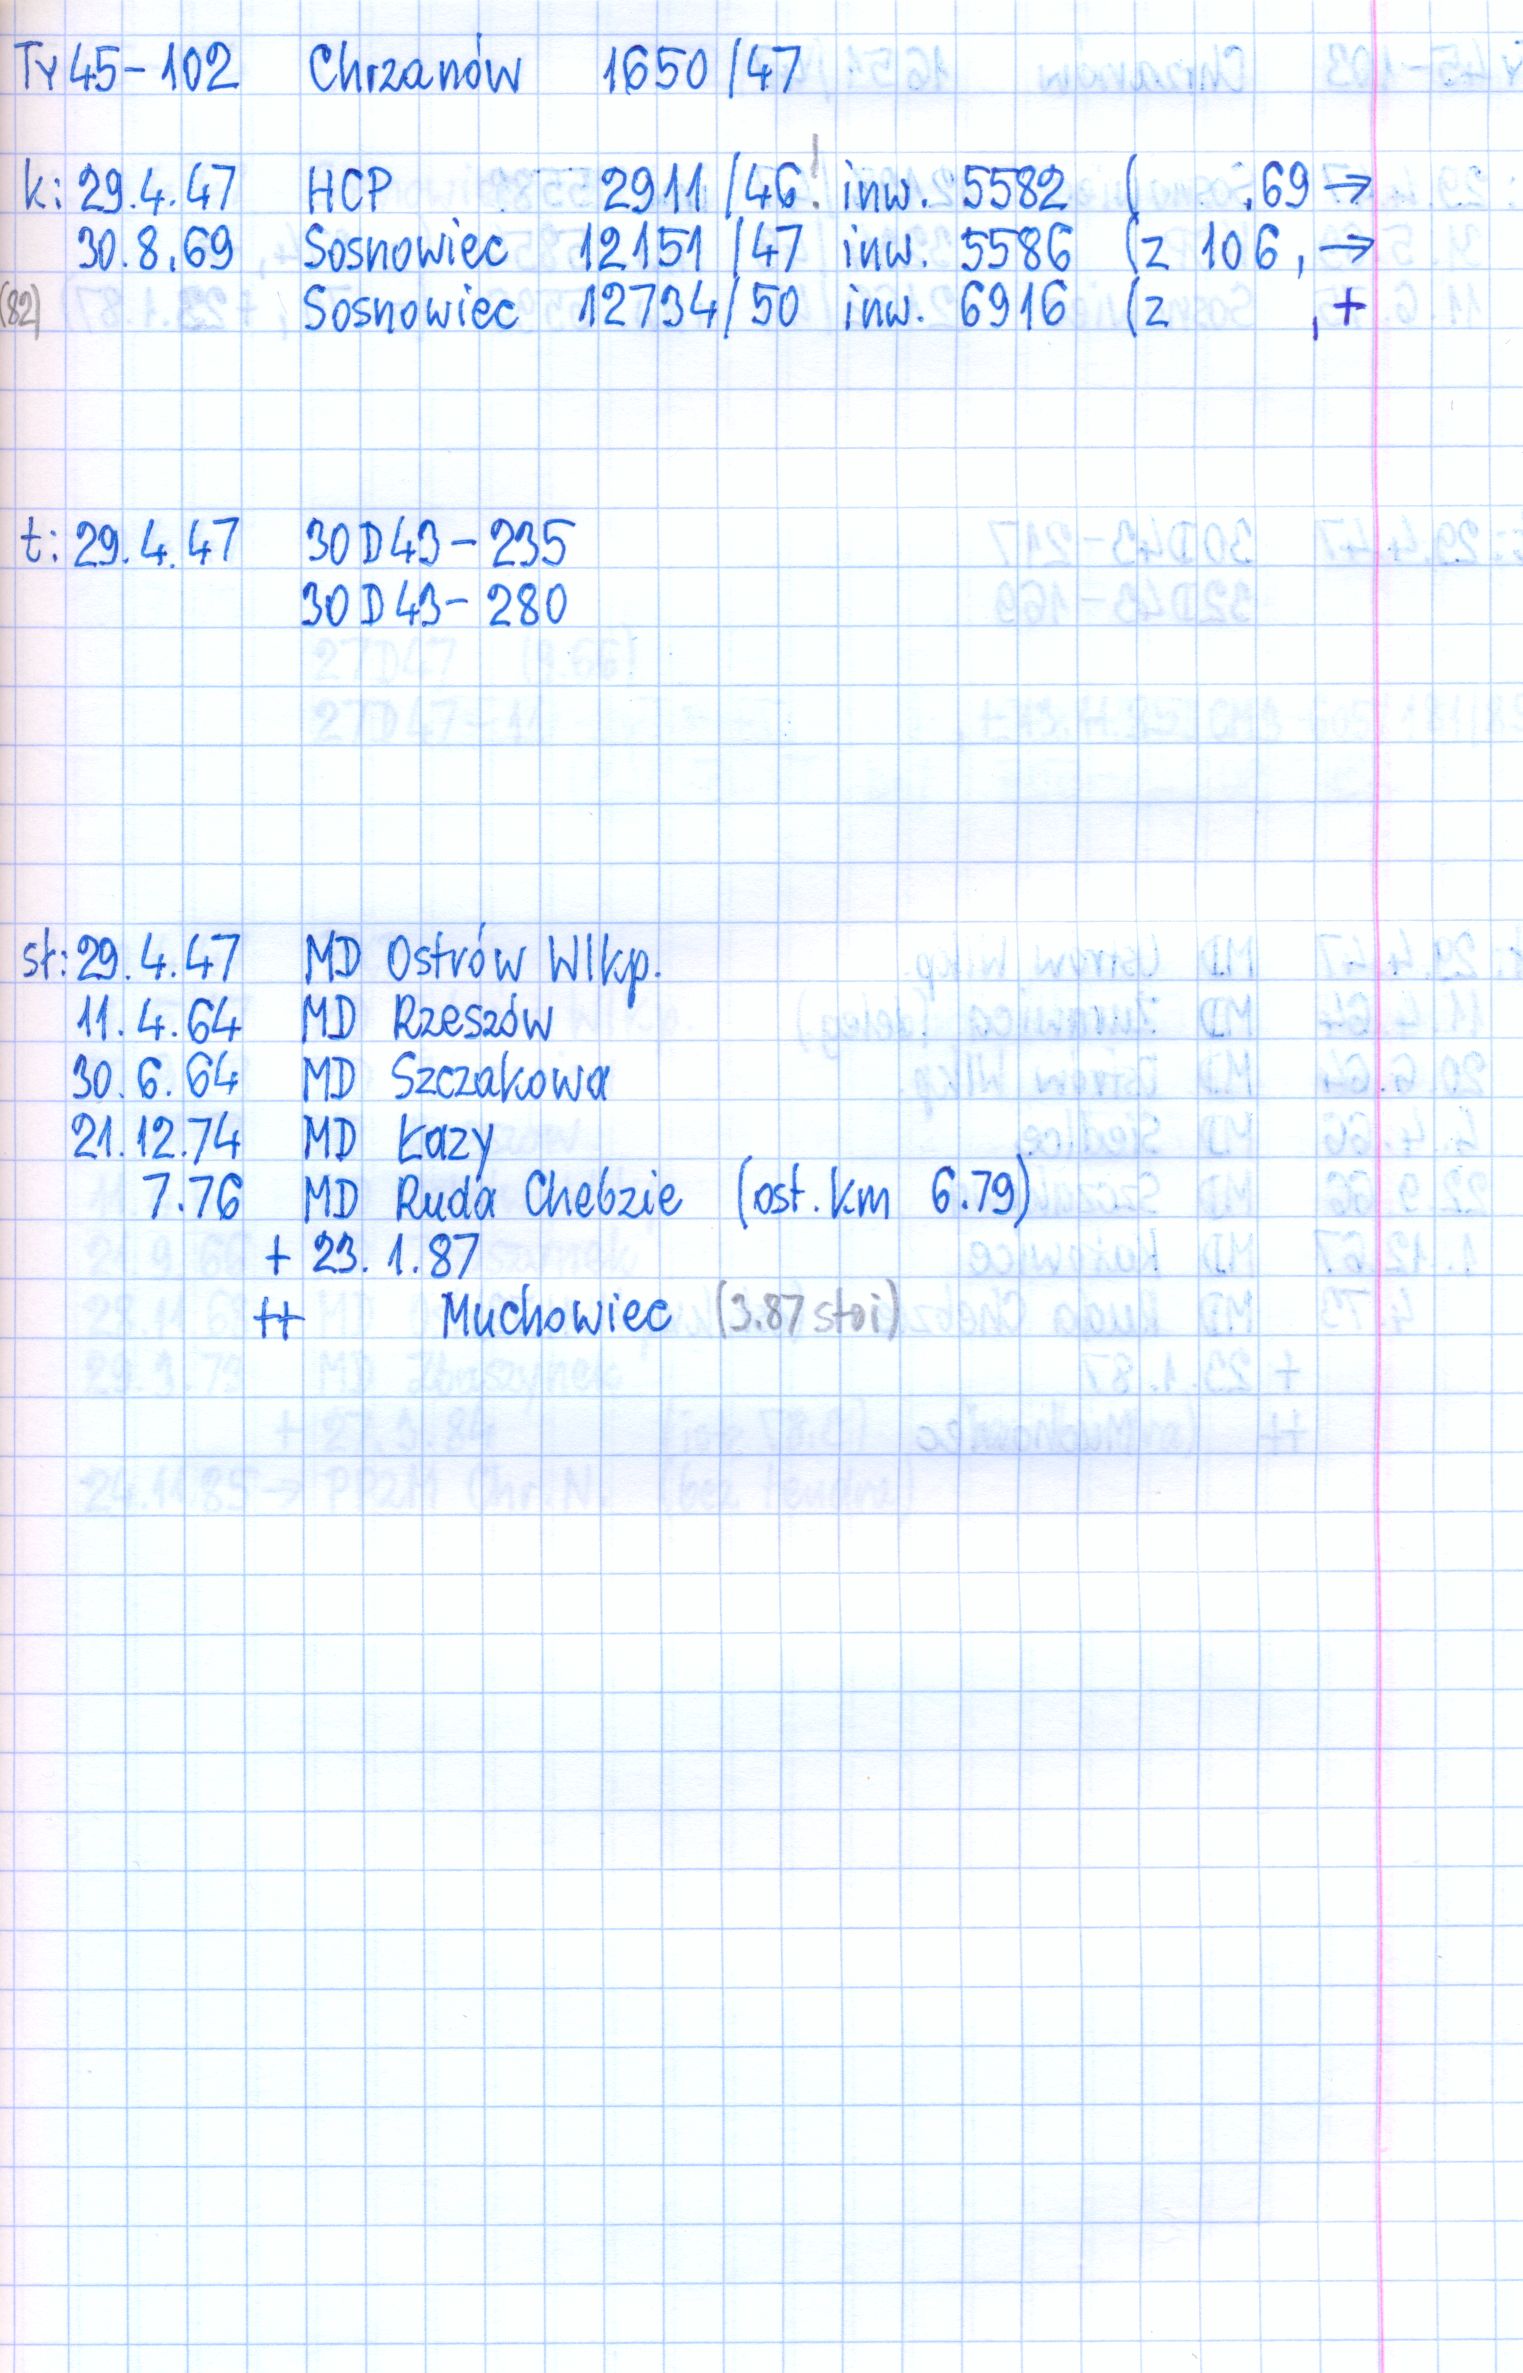 Ty45-102 Chrzanów 1650/47
k: 29.4.47 HCP 2911/46! inw. 5582 ( .69 →
30.8.69 Sosnowiec 12151/47 inw. 5586 (z 106, →
(82) Sosnowiec 12734/50 inw. 6916 (z , +
t: 29.4.47 30D43-235
30D43-280
sł: 29.4.47 MD Ostrów Wlkp.
11.4.64 MD Rzeszów
30.6.64 MD Szczakowa
21.12.74 MD Łazy
7.76 MD Ruda Chebzie (ost. km 6.79)
+ 23.1.87
++ Muchowiec (3.87 stoi)